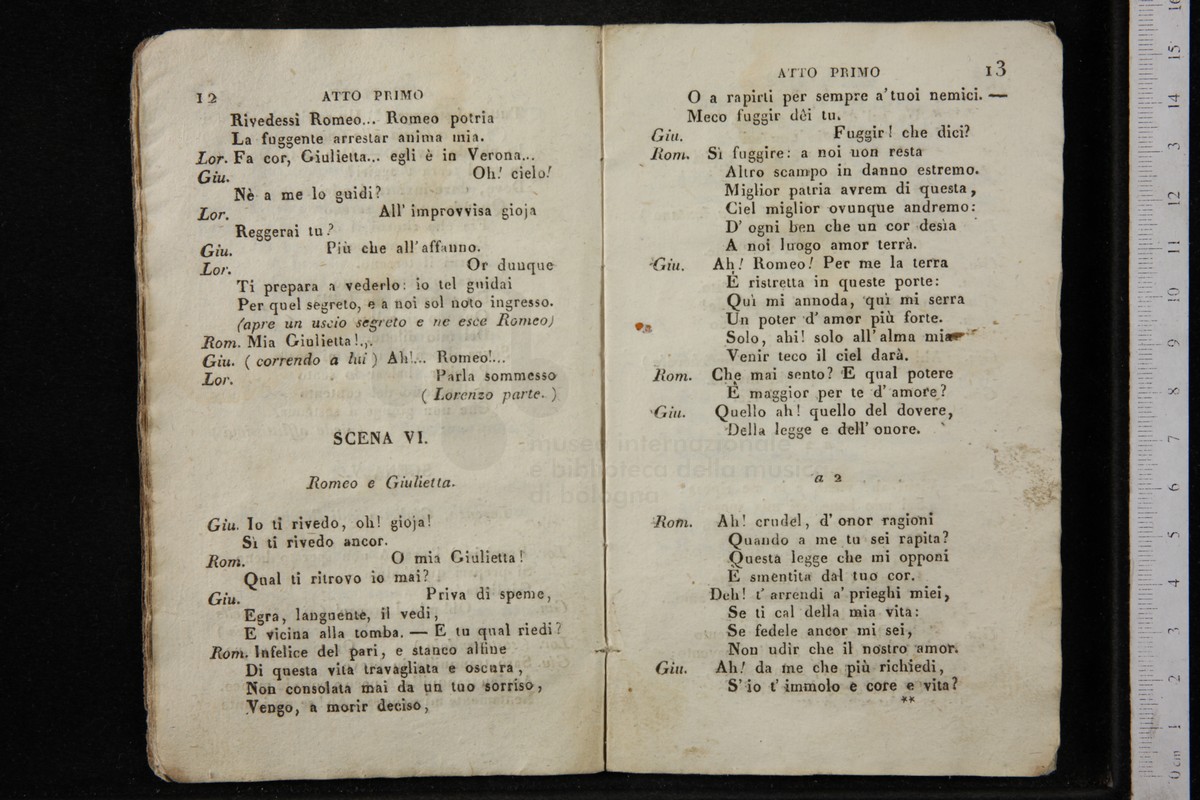 12 ATTO PRIMO
Rivedessi Romeo... Romeo potria
La fuggente arrestar anima mia.
Lor. Fa cor, Giulietta... egli è in Verona...
Giu. Oh! cielo!
Nè a me lo guidi?
Lor. All' improvvisa gioja
Reggerai tu?
Giu. Più che all' affanno.
Lor. Or dunque
Ti prepara a vederlo: io tel guidai
Per quel segreto, e a noi sol noto ingresso.
(apre un uscio segreto e ne esce Romeo)
Rom. Mia Giulietta!...
Giu. ( correndo a lui ) Ah!... Romeo!...
Lor. Parla sommesso
( Lorenzo parte. )
SCENA VI.
Romeo e Giulietta.
Giu. Io ti rivedo, oh! gioja!
Sì ti rivedo ancor.
Rom. O mia Giulietta!
Qual ti ritrovo io mai?
Giu. Priva di speme,
Egra, languente, il vedi,
E vicina alla tomba. — E tu qual riedi?
Rom. Infelice del pari, e stanco alfine
Di questa vita travagliata e oscura,
Non consolata mai da un tuo sorriso,
Vengo, a morir deciso,
ATTO PRIMO 13
O a rapirti per sempre a' tuoi nemici. —
Meco fuggir dèi tu.
Giu. Fuggir! che dici?
Rom. Sì fuggire: a noi non resta
Altro scampo in danno estremo.
Miglior patria avrem di questa,
Ciel miglior ovunque andremo:
D' ogni ben che un cor desìa
A noi luogo amor terrà.
Giu. Ah! Romeo! Per me la terra
È ristretta in queste porte:
Quì mi annoda, quì mi serra
Un poter d' amor più forte.
Solo, ahi! solo all' alma mia
Venir teco il ciel darà.
Rom. Che mai sento? E qual potere
È maggior per te d' amore?
Giu. Quello ah! quello del dovere,
Della legge e dell' onore.
a 2
Rom. Ah! crudel, d' onor ragioni
Quando a me tu sei rapita?
Questa legge che mi opponi
È smentita dal tuo cor.
Deh! t' arrendi a' prieghi miei,
Se ti cal della mia vita:
Se fedele ancor mi sei,
Non udir che il nostro amor.
Giu. Ah! da me che più richiedi,
S' io t' immolo e core e vita?
**
museo internazionale
e biblioteca della musica
di bologna
0 cm 1 2 3 4 5 6 7 8 9 10 11 12 3 14 15 16